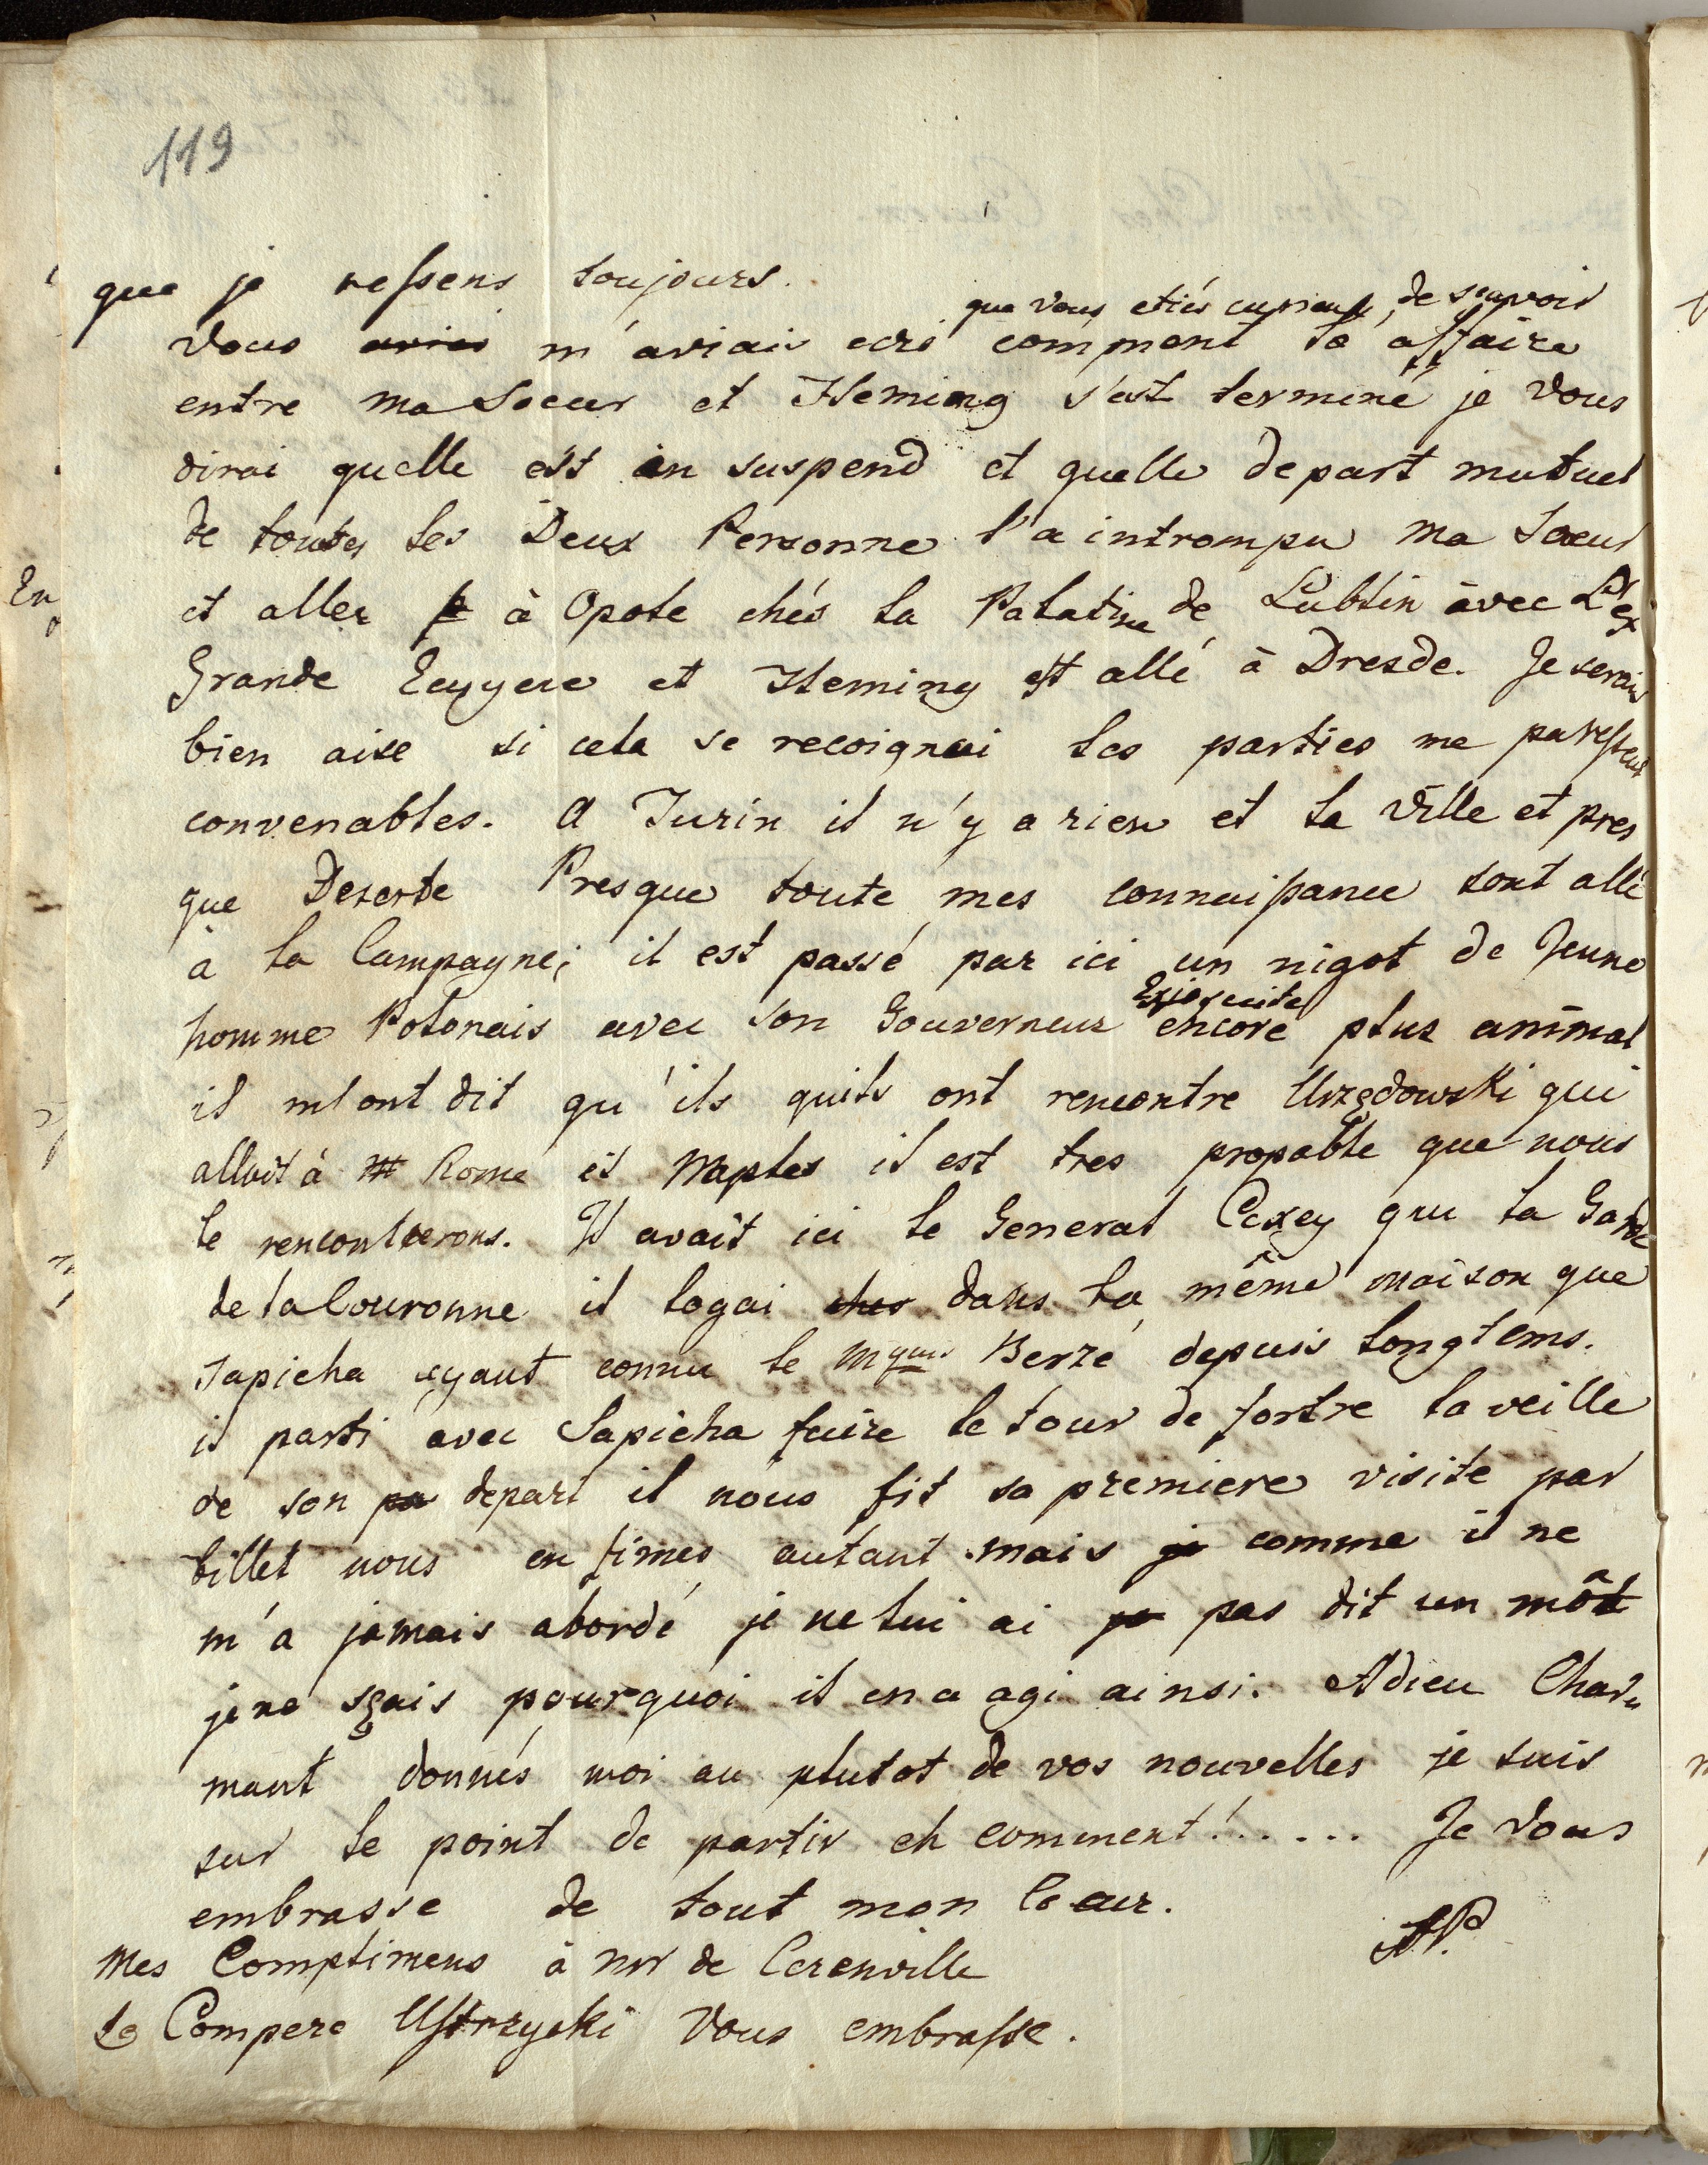 119
que je ressens toujours.
que vous etiés curieux de sçavoir
Vous aviés m'aviai ecri comment la affaire
entre ma Soeur et Fleming s'est terminé je vous
dirai quelle est in suspend et quelle depart mutuel
de toutes les Deux Personne l'a intrompu ma Soeur
et aller à Opole chés la Palatine de Lublin avec L'ex
Grande Ecuyere et Fleming est allé à Dresde. Je serais
bien aise si cela se recoignai les parties me paressent
convenables. A Turin il n'y a rien et la Ville et pres
que Deserte Presque toute mes connaissance sont allé
à la Campagne; il est passé par ici un nigot de Jeune
Exiesuite
homme Polonais avec son Gouverneur encore plus animal
il m'ont dit qu'ils quils ont rencontre Urzędowski qui
alloit à Rome et Naples il est tres propable que nous
le rencontrerons. Il avait ici le General Coxey que la Garde
de la Couronne il logai ches dans la même maison que
Sapieha ayant connu le Mquis Berzé depuis longtems.
il parti avec Sapieha faire le tour de fortre la veille
de son pa depart il nous fit sa premiere visite par
billet nous en fimes autant mais je comme il ne
m'a jamais abordé je ne lui ai pas dit un môt
je ne sçais pourquoi il en a agi ainsi. Adieu Char
mant donnés moi au plutot de vos nouvelles je suis
sur le point de partir eh comment!..... Je Vous
embrasse de tout mon Coeur.
SP.
Mes Complimens à mr de Cerenville
Le Compere Ustrzycki Vous embrasse.